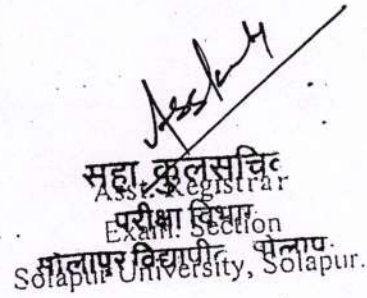 सहा कुलसचिव
Asst. Registrar
परीक्षा विभाग
Exam. Section
सोलापूर विद्यापीठ, सोलापूर.
Solapur University, Solapur.